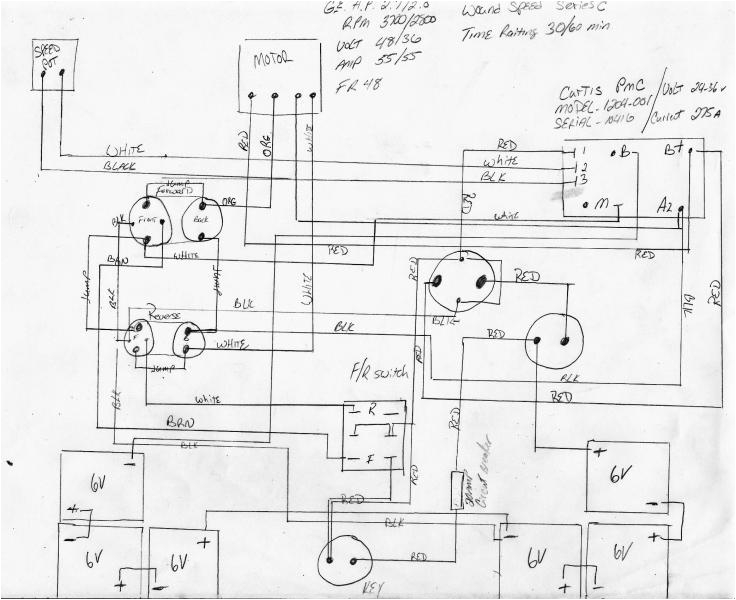 G.E. H.P. 2.1/2.0
Wound Speed Series C
RPM 3700/2800
VOLT 48/36
Time Raiting 30/60 min
AMP 55/55
FR 48
SPEED POT
MOTOR
CURTIS PMC
MODEL-1204-001
Volt 24-36v
Current 275A
RED
ORG
white
WHITE
BLACK
RED
WHITE
BLK
1
2
3
B-
B+
M-
A2
RED
white
Jump
Forward
ORG
BLK
Front
Back
BRN
WHITE
RED
RED
Jump
BLK
Jump
WHITE
RED
RED
BLK
RED
Reverse
BLK
BLK
BLK
RED
WHITE
Jump
F/R switch
RED
BLK
RED
white
R
BRN
BLK
BLK
F
RED
RED
6V
-
+
6V
+
-
6V
+
RED
BLK
KEY
RED
Circuit breaker
6V
+
-
6V
-
+
6V
-